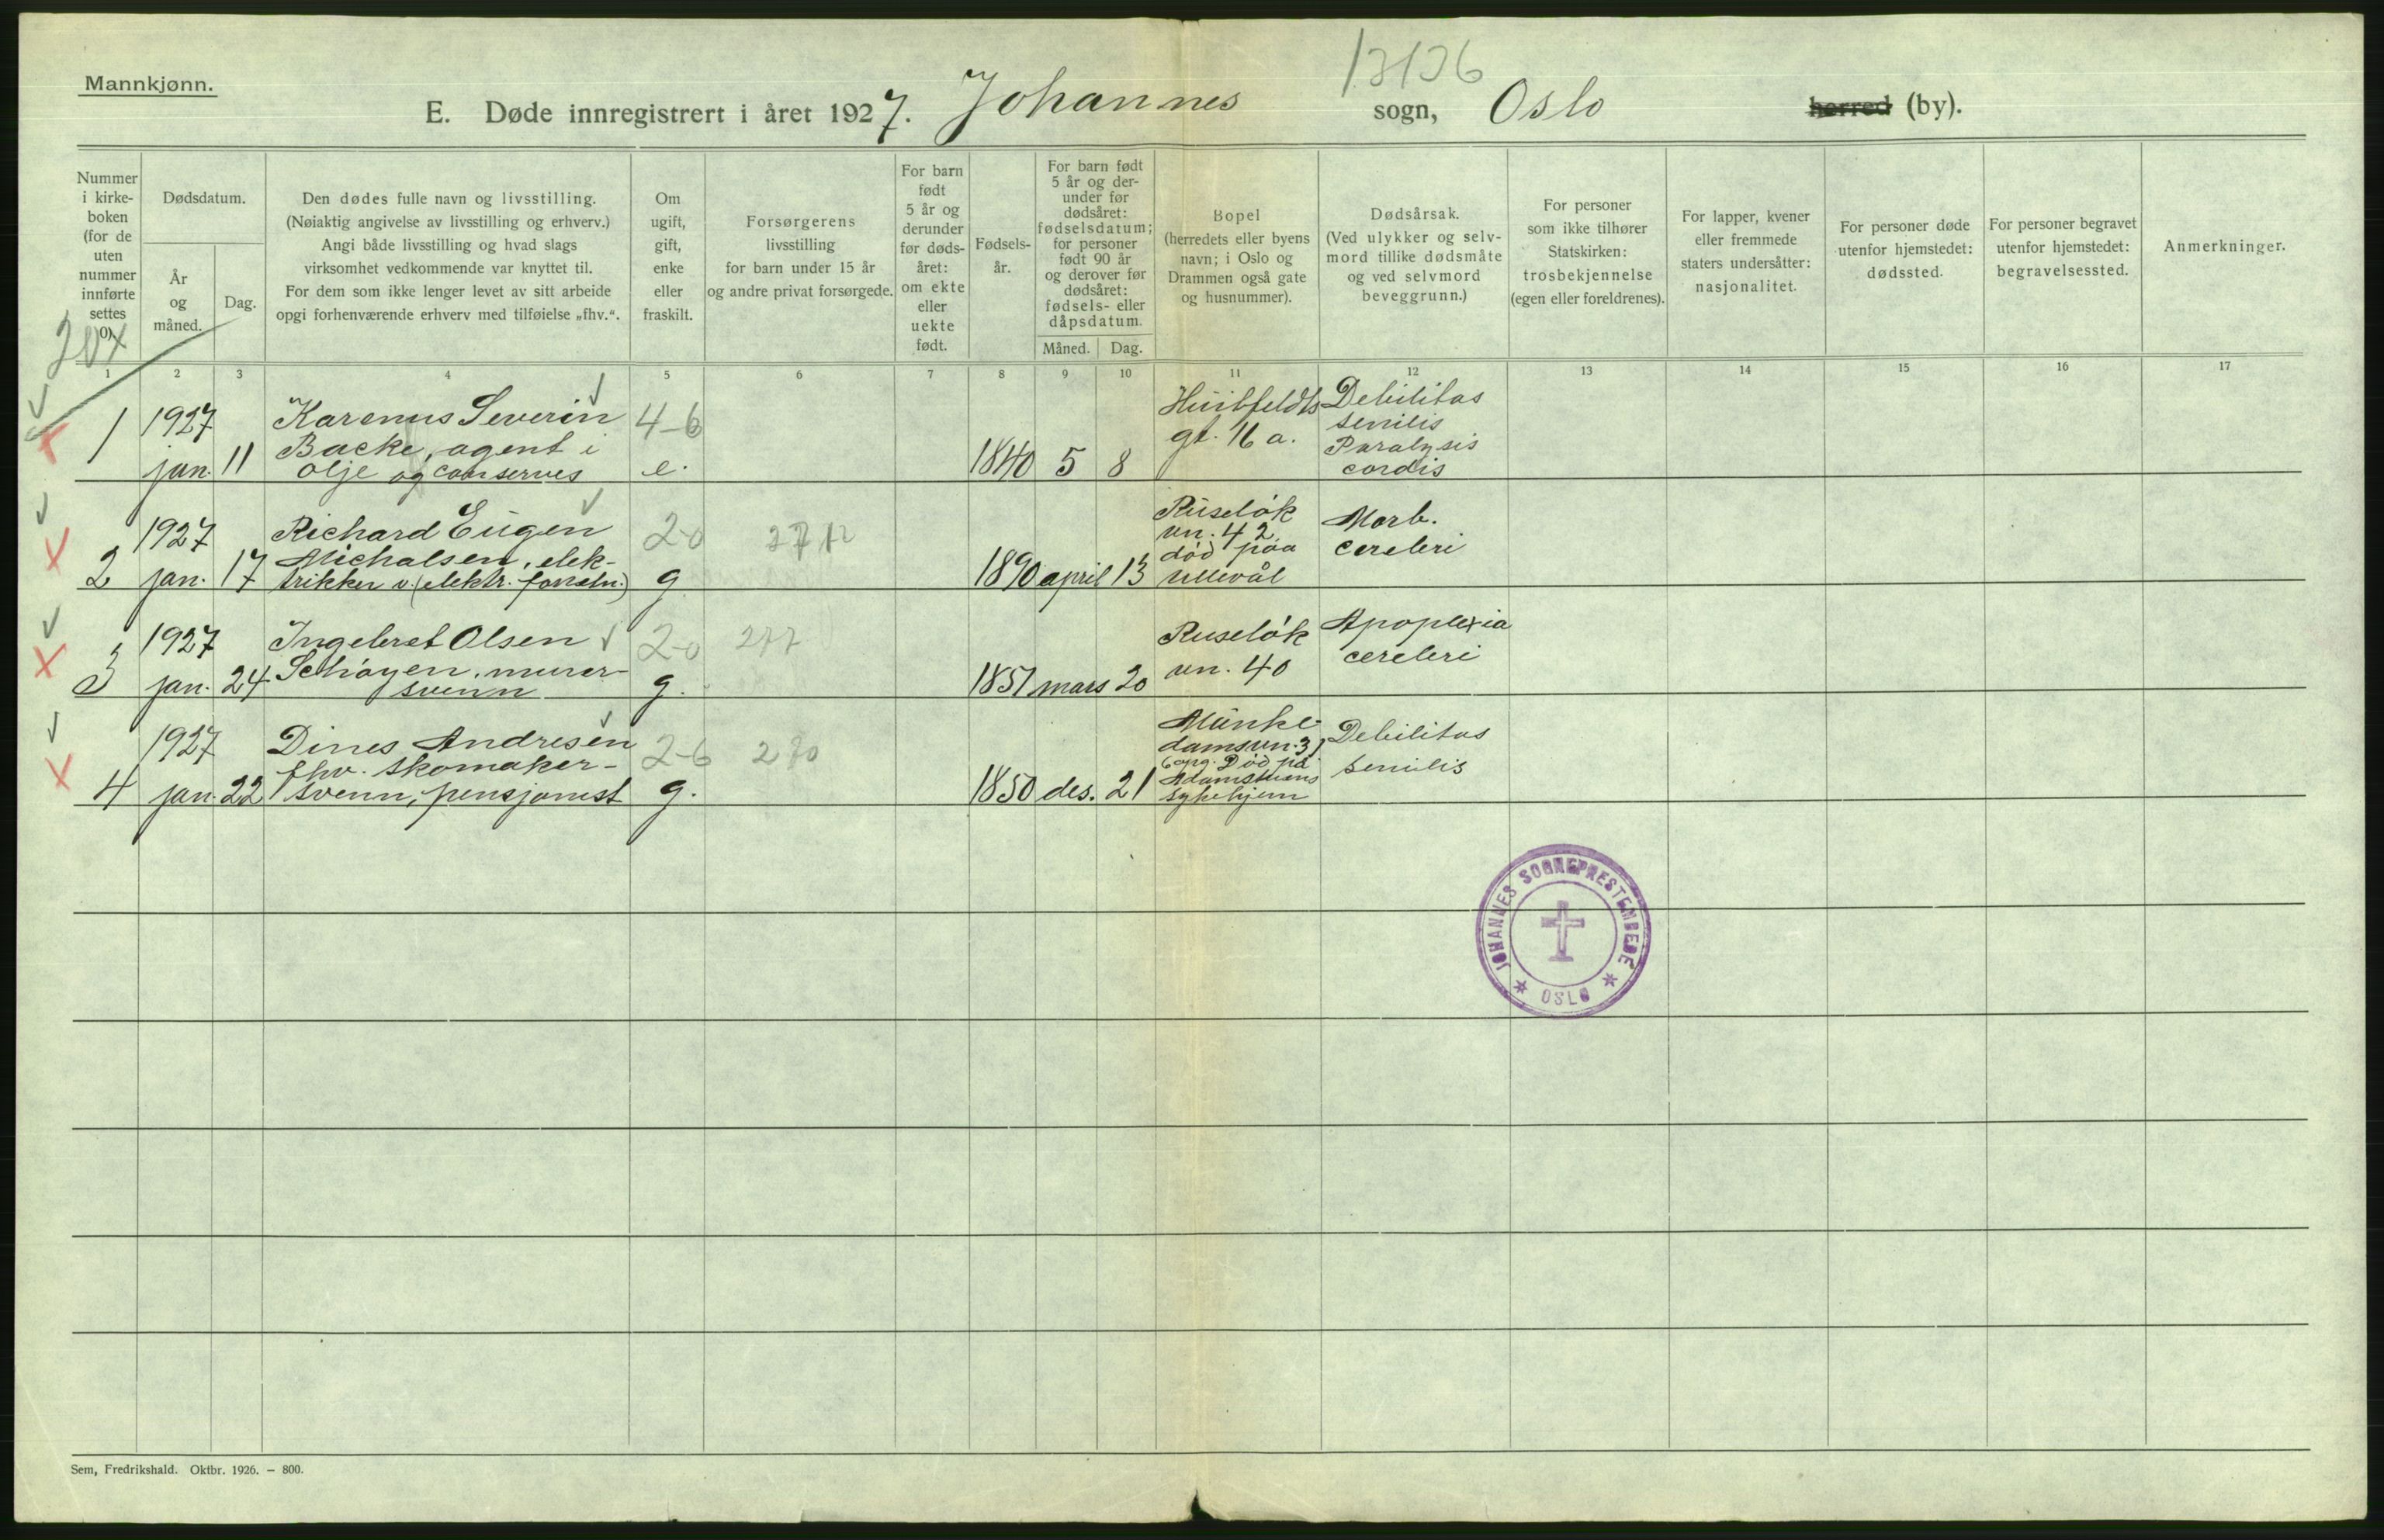 Mannkjønn.
13136
E. Døde innregistrert i året 1927. Johannes sogn, Oslo herred (by).
Nummer
i kirke-
boken
(for de
uten
nummer
innførte
settes
0).
Dødsdatum.
År
og
måned.
Dag.
Den dødes fulle navn og livsstilling.
(Nøiaktig angivelse av livsstilling og erhverv.)
Angi både livsstilling og hvad slags
virksomhet vedkommende var knyttet til.
For dem som ikke lenger levet av sitt arbeide
opgi forhenværende erhverv med tilføielse „fhv.“.
Om
ugift,
gift,
enke
eller
fraskilt.
Forsørgerens
livsstilling
for barn under 15 år
og andre privat forsørgede.
For barn
født
5 år og
derunder
før døds-
året:
om ekte
eller
uekte
født.
Fødsels-
år.
For barn født
5 år og der-
under før
dødsåret:
fødselsdatum;
for personer
født 90 år
og derover før
dødsåret:
fødsels- eller
dåpsdatum.
Måned. Dag.
Bopel
(herredets eller byens
navn; i Oslo og
Drammen også gate
og husnummer).
Dødsårsak.
(Ved ulykker og selv-
mord tillike dødsmåte
og ved selvmord
beveggrunn.)
For personer
som ikke tilhører
Statskirken:
trosbekjennelse
(egen eller foreldrenes).
For lapper, kvener
eller fremmede
staters undersåtter:
nasjonalitet.
For personer døde
utenfor hjemstedet:
dødssted.
For personer begravet
utenfor hjemstedet:
begravelsessted.
Anmerkninger.
1 2 3 4 5 6 7 8 9 10 11 12 13 14 15 16 17
1
1927
jan. 11
Karenus Severin
Backe, agent i
olje og conserves
4-6
e.
1840 5 8
Huitfeldts
gt. 16 a.
Debilitas
senilis
Paralysis
cordis
2
1927
jan. 17
Richard Eugen
Michalsen, elek-
trikker v. (elektr. forretn.)
2-0
g
1890 april 13
Ruseløk
vn. 42
død paa
Ullevål
Morb.
cerebri
3
1927
jan. 24
Ingebret Olsen
Schøyen, murer-
svenn
2-0 277
g.
1851 mars 20
Ruseløk
vn. 40
Apoplexia
cerebri
4
1927
jan. 22
Dines Andresen
fhv. skomaker-
svenn, pensjonist
2-6 280
g.
1850 des. 21
Munke
damsvn. 31
Død på
Adamstuens
sykehjem
Debilitas
senilis
JOHANNES SOGNEPRESTEMBEDE
* OSLO *
Sem, Fredrikshald. Oktbr. 1926. – 800.